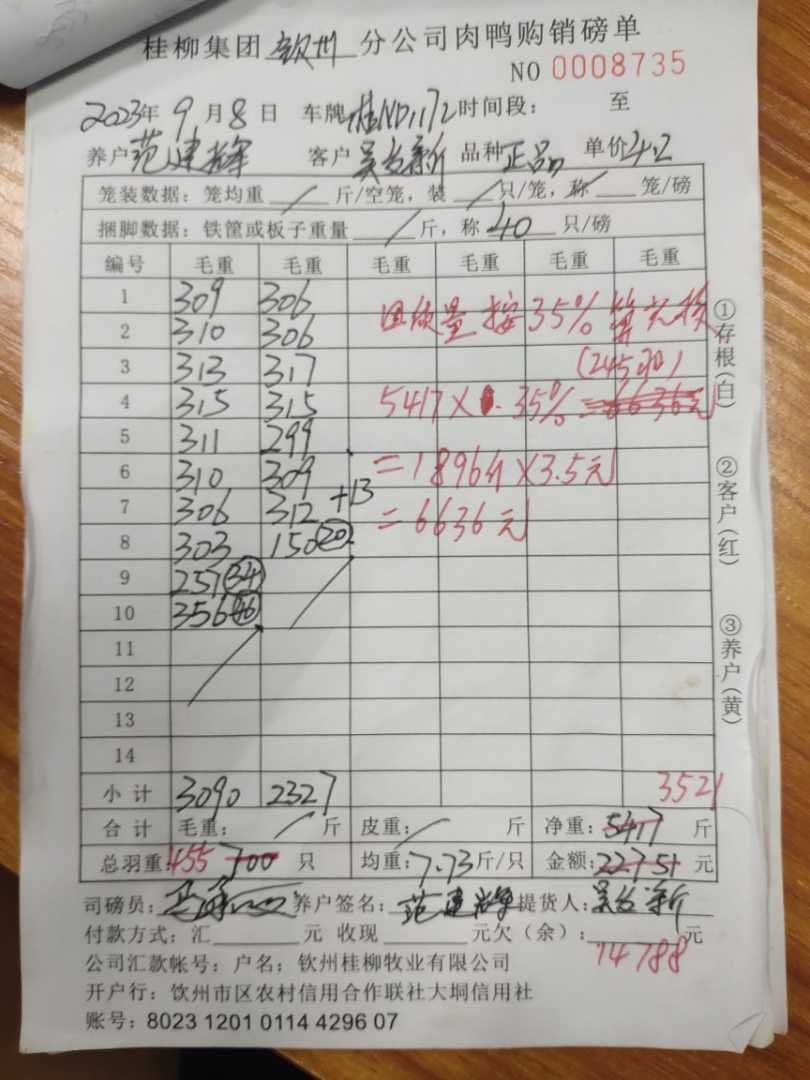 桂柳集团 钦州 分公司肉鸭购销磅单
NO 0008735
2023年 9 月 8 日 车牌 桂ND1172 时间段： 至
养户 范建辉 客户 吴发新 品种 正品 单价 4.2
笼装数据：笼均重 / 斤/空笼，装 / 只/笼，称 / 笼/磅
捆脚数据：铁筐或板子重量 / 斤，称 40 只/磅
编号 毛重 毛重 毛重 毛重 毛重 毛重
1 309 306
2 310 306 质量按35%算
3 313 317 (245羽)
4 315 315 5417×35%=6636元
5 311 299
6 310 309 =1896斤×3.5元
7 306 312 +13 =6636元
8 303 150 (20)
9 257 (34)
10 356 (46)
11
12
13
14
小计 3090 2327 3521
合计 毛重： / 斤 皮重： / 斤 净重：5417 斤
总羽重：455 700 只 均重：7.73斤/只 金额：22751 元
司磅员： 养户签名：范建辉 提货人：吴发新
付款方式：汇 元 收现 元欠（余）： 元
14788
公司汇款帐号：户名：钦州桂柳牧业有限公司
开户行：钦州市区农村信用合作联社大垌信用社
账号：8023 1201 0114 4296 07
①存根(白)
②客户(红)
③养户(黄)